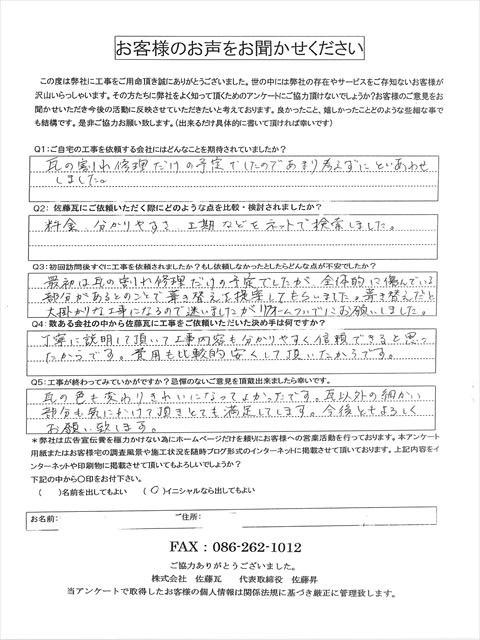 お客様のお声をお聞かせください
この度は弊社に工事をご用命頂き誠にありがとうございました。世の中には弊社の存在やサービスをご存知ないお客様が
沢山いらっしゃいます。その方たちに弊社をよく知って頂くためのアンケートにご協力頂けないでしょうか？お客様のご意見をお
聞かせいただき今後の活動に反映させていただきたいと考えております。良かったこと、嬉しかったことどのような些細な事で
も結構です。是非ご協力お願い致します。（出来るだけ具体的に書いて頂ければ幸いです）
Q1：ご自宅の工事を依頼する会社にはどんなことを期待されていましたか？
瓦の割れ修理だけの予定でしたのであまり考えずにといあわせ
しました。
Q2： 佐藤瓦にご依頼いただく際にどのような点を比較・検討されましたか？
料金、分かりやすさ 工期などをネットで検索しました。
Q3：初回訪問後すぐに工事を依頼されましたか？もし依頼しなかったとしたらどんな点が不安でしたか？
最初は瓦の割れ修理だけの予定でしたが、全体的に傷んでいる
部分があるとのことで葺き替えを提案してもらいました。葺き替えだと
大掛かりな工事になるので迷いましたがリフォームついでにお願いしました。
Q4：数ある会社の中から佐藤瓦に工事をご依頼いただいた決め手は何ですか？
丁寧に説明して頂いて工事内容も分かりやすく信頼できると思っ
たからです。費用も比較的安くして頂いたからです。
Q5：工事が終わってみていかがですか？忌憚のないご意見を頂戴出来ましたら幸いです。
瓦の色も変わりきれいになってよかったです。瓦以外の細かい
部分も気にかけて頂きとても満足してします。今後ともよろしく
お願い致します。
＊弊社は広告宣伝費を極力かけない為にホームページだけを頼りにお客様への営業活動を行っております。本アンケート
用紙またはお客様宅の調査風景や施工状況を随時ブログ形式のインターネットに掲載させて頂いております。上記内容をイ
ンターネットや印刷物に掲載させて頂いてもよろしいでしょうか？
下記の中から〇印をお付下さい。
（ ）名前を出してもよい （〇）イニシャルなら出してもよい
お名前： ご住所：
FAX：086-262-1012
ご協力ありがとうございました。
株式会社 佐藤瓦 代表取締役 佐藤昇
当アンケートで取得したお客様の個人情報は関係法規に基づき厳正に管理致します。